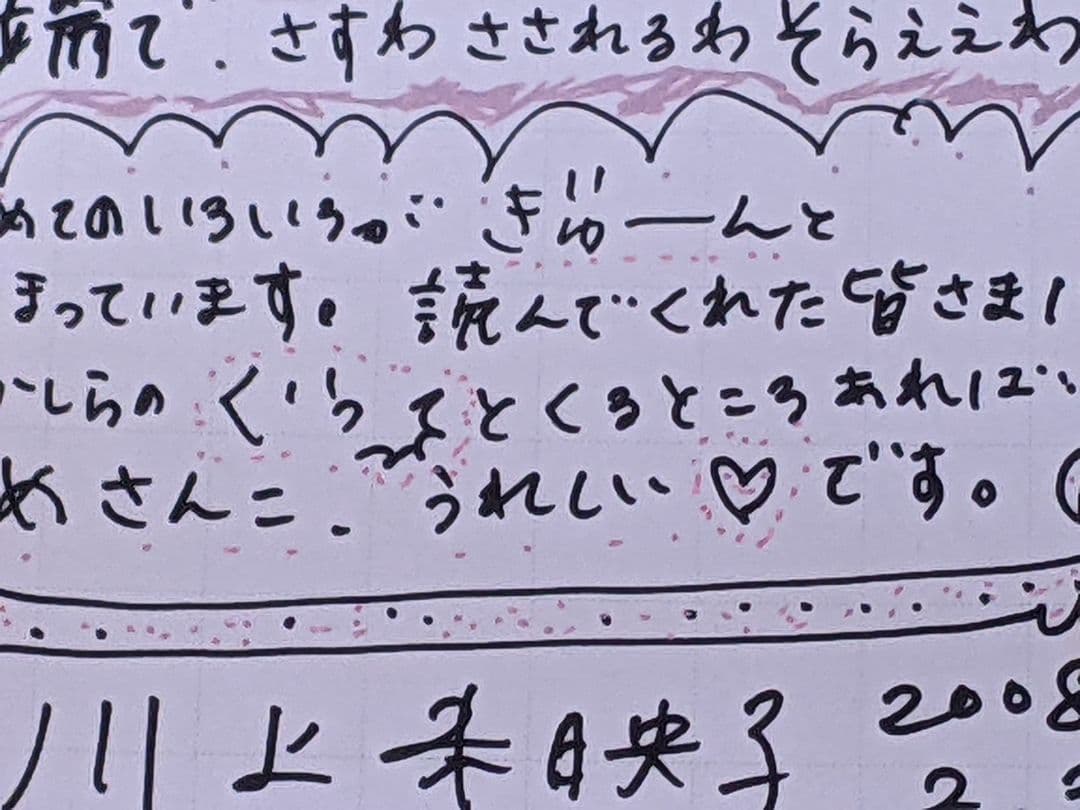 端で、さすわ さされるわ そらええわ
めてのいろいろが ぎゅーんと
まっています。読んでくれた皆さま
しらの くらっ てとくるところ あれば
めさんこ、うれしい♡です。
川上未映子 2008
2